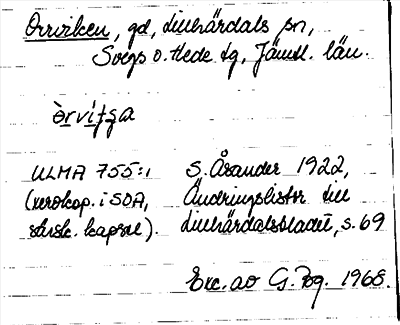 Orrviken, gd, Lillhärdals sn,
Svegs o. Hede tg, Jämtl. län.
òrvitʒa
ULMA 755:1
(xerokop. i SOA,
särsk. kapsel).
S. Åsander 1922,
Ändringslistor till
Lillhärdalsbladet, s. 69
Exc. av G. Bg. 1968.